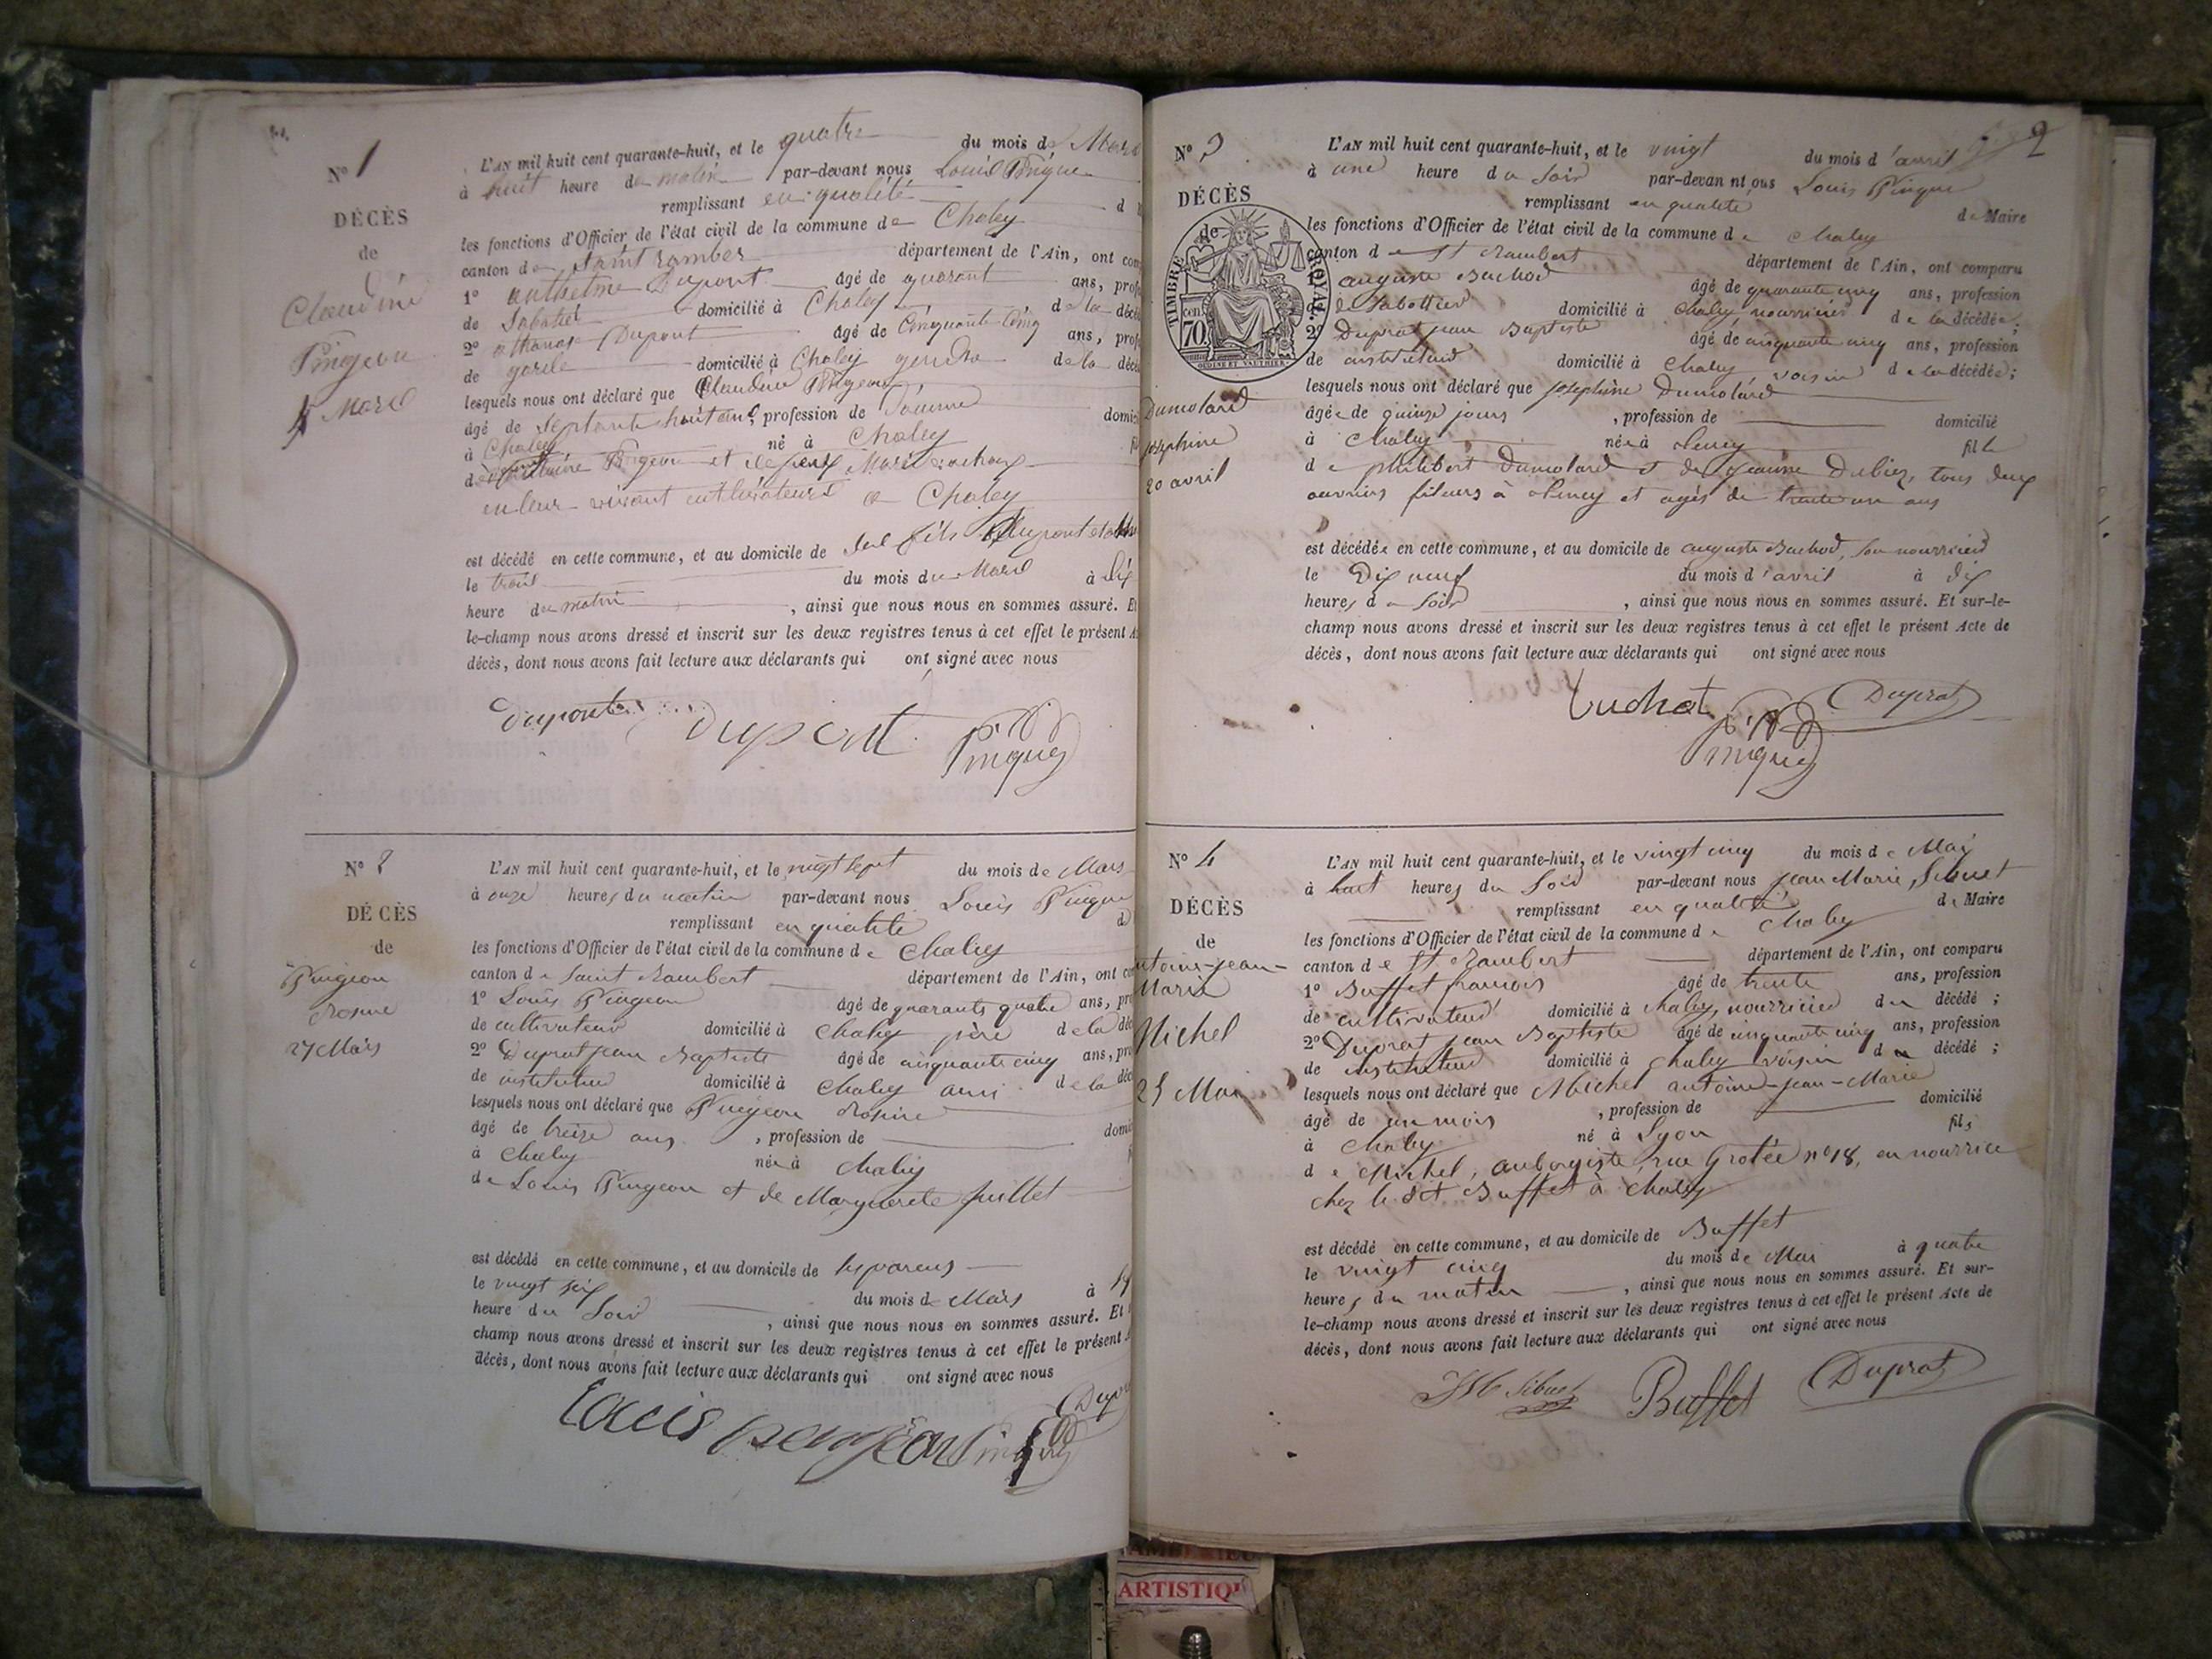 N° 1
DÉCÈS
de
Claudine
Pingeon
4 Mars
L'AN mil huit cent quarante-huit, et le quatre du mois de Mars
à huit heure du matin par-devant nous Louis Pingue
remplissant en qualité d
les fonctions d'Officier de l'état civil de la commune de Chaley
canton de Saint rambert département de l'Ain, ont com
1° anthelme Dupont âgé de quarant ans, prof
de Sabotier domicilié à Chaley de la décé
2° athanase Dupont âgé de Cinquante Cinq ans, prof
de garde domicilié à Chaley gendre de la décé
lesquels nous ont déclaré que Claudine Pingeon
âgé de septante huit ans, profession de domi
à Chaley né à Chaley
Pingeon et de Marie
en leur vivant cultivateurs a Chaley
est décédé en cette commune, et au domicile de fils Dupont
le trois du mois du Mars à Dix
heure du matin , ainsi que nous nous en sommes assuré. Et
le-champ nous avons dressé et inscrit sur les deux registres tenus à cet effet le présent A
décès, dont nous avons fait lecture aux déclarants qui ont signé avec nous
Dupont Dupont Pingue
N° 2
DÉCÈS
de
Pingeon
Rosine
27 Mars
L'AN mil huit cent quarante-huit, et le vingt sept du mois de Mars
à onze heures du matin par-devant nous Louis Pingue
remplissant en qualité d
les fonctions d'Officier de l'état civil de la commune de Chaley
canton de Saint Rambert département de l'Ain, ont co
1° Louis Pingeon âgé de quarante quatre ans, pro
de cultivateur domicilié à Chaley père de la déc
2° Duprat jean Baptiste âgé de cinquante cinq ans, pro
de instituteur domicilié à Chaley ami de la déc
lesquels nous ont déclaré que Pingeon Rosine
âgé de treize ans , profession de domi
à Chaley née à Chaley
de Louis Pingeon et de Marguerite Juillet
est décédé en cette commune, et au domicile de ses parens
le vingt six du mois de Mars à
heure du Soir , ainsi que nous nous en sommes assuré. Et
champ nous avons dressé et inscrit sur les deux registres tenus à cet effet le présent A
décès, dont nous avons fait lecture aux déclarants qui ont signé avec nous
Louis pengeon Pingue Dup
2
N° 3
DÉCÈS
de
TIMBRE ROYAL
70 cen
Dumolard
josephine
20 avril
L'AN mil huit cent quarante-huit, et le vingt du mois d'avril
à une heure du Soir par-devan nt ous Louis Pingue
remplissant en qualité de Maire
les fonctions d'Officier de l'état civil de la commune de Chaley
canton de St Rambert département de l'Ain, ont comparu
auguste Buchod âgé de quarante cinq ans, profession
de Sabottier domicilié à Chaley, nourricier de la décédée;
2° Duprat jean Baptiste âgé de cinquante cinq ans, profession
de instituteur domicilié à Chaley voisin de la décédée;
lesquels nous ont déclaré que josephine Dumolard
âgée de quinze jours , profession de domicilié
à Chaley née à oliney fille
de philibert Dumolard et de jeanne Dubiez, tous deux
ouvriers fileurs à oliney et agés de trente un ans
est décédée en cette commune, et au domicile de auguste Buchod, son nourricier
le Dix neuf du mois d'avril à dix
heures du Soir , ainsi que nous nous en sommes assuré. Et sur-le-
champ nous avons dressé et inscrit sur les deux registres tenus à cet effet le présent Acte de
décès, dont nous avons fait lecture aux déclarants qui ont signé avec nous
buchot Pingue Duprat
N° 4
DÉCÈS
de
ntoine-jean-
Marie
Michel
25 Mai
L'AN mil huit cent quarante-huit, et le vingt cinq du mois de Mai
à huit heures du Soir par-devant nous jean Marie Sibuet
remplissant en qualité de Maire
les fonctions d'Officier de l'état civil de la commune de Chaley
canton de St Rambert département de l'Ain, ont comparu
1° Buffet francois âgé de trente ans, profession
de cultivateur domicilié à Chaley, nourricier du décédé ;
2° Duprat jean Baptiste âgé de cinquante cinq ans, profession
de instituteur domicilié à Chaley voisin du décédé ;
lesquels nous ont déclaré que Michel antoine-jean-Marie
âgé de un mois , profession de domicilié
à Chaley né à Lyon fils
de Michel, aubergiste, rue Grolée n° 18, en nourrice
chez le dit Buffet à Chaley
est décédé en cette commune, et au domicile de Buffet
le vingt cinq du mois de Mai à quatre
heures du matin , ainsi que nous nous en sommes assuré. Et sur-
le-champ nous avons dressé et inscrit sur les deux registres tenus à cet effet le présent Acte de
décès, dont nous avons fait lecture aux déclarants qui ont signé avec nous
JM Sibuet Buffet Duprat
ARTISTIQU